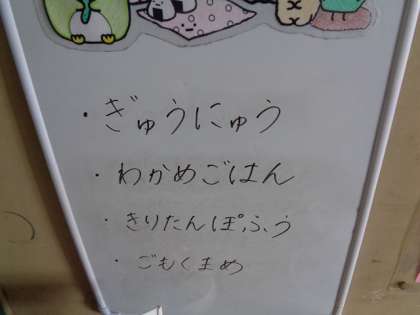 ・ぎゅうにゅう
・わかめごはん
・きりたんぽふう
・ごもくまめ